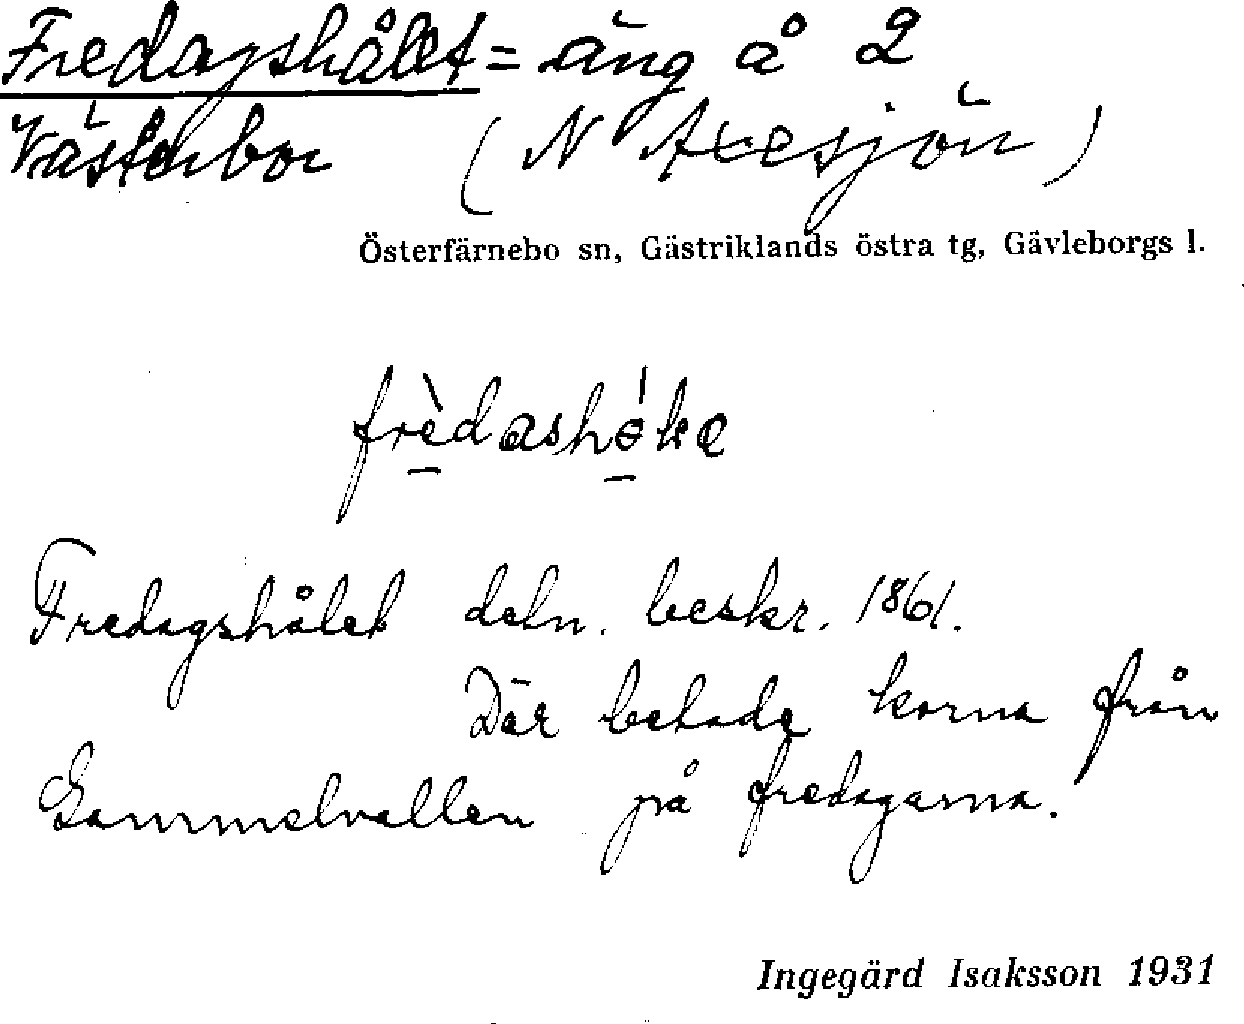 Fredagshålet = äng å 2
Västerbor (N Axesjön)
Österfärnebo sn, Gästriklands östra tg, Gävleborgs l.
frèdashóke
Fredagshålet deln. beskr. 1861.
Där betade korna från
Gammelvallen på fredagarna.
Ingegärd Isaksson 1931